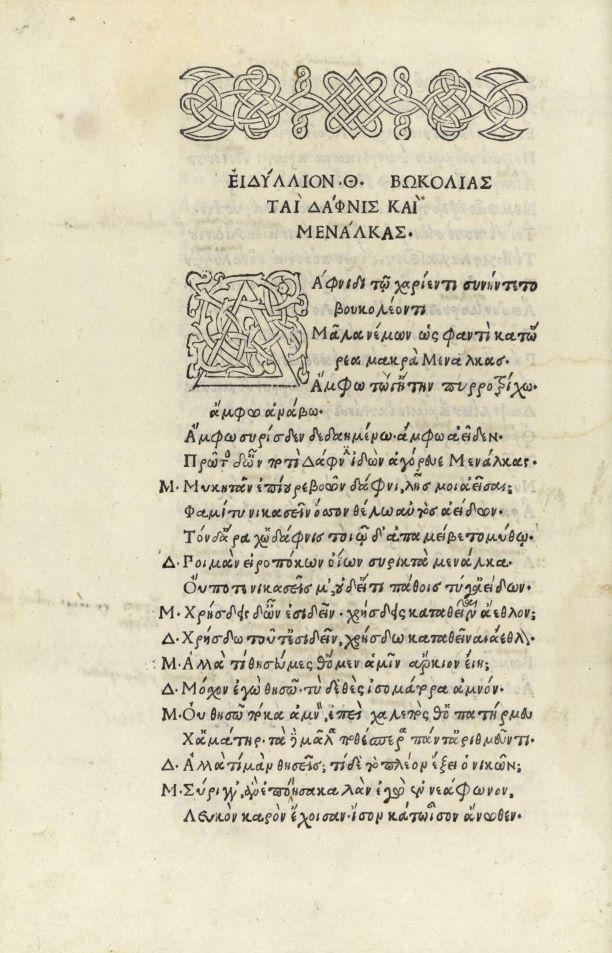 ΕἸΔΎΛΛΙΟΝ·Θ· ΒΩΚΟΛΙΑΣ
ΤΑῚ ΔΆΦΝΙΣ ΚΑῚ
ΜΕΝΆΛΚΑΣ·
Δάφνιδι τῷ χαρίεντι συνήντετο
βουκολέοντι
Μᾶλα νέμων ὡς φαντὶ κατ' ὤ
ρεα μακρὰ Μενάλκας·
Ἄμφω τώγ' ἤτην πυρροτρίχω·
ἄμφω ἀνάβω·
Ἄμφω συρίσδεν δεδαημένω· ἄμφω ἀείδεν·
Πρῶτος δ' ὦν ποτὶ Δάφνιν ἰδὼν ἀγόρευε Μενάλκας·
Μ· Μυκητᾶν ἐπίουρε βοῶν δάφνι, λῇς μοι ἀεῖσαι;
Φαμί τυ νικασεῖν ὅσσον θέλω αὐτὸς ἀείδων·
Τὸν δ' ἄρα χὠ δάφνις τοιῷ δ' ἀπαμείβετο μύθῳ·
Δ· Ποιμὰν εἰροπόκων ὀΐων συρικτὰ μενάλκα·
Οὔποτε νικασεῖς μ', οὐδ' εἴ τι πάθοις τύ γ' ἀείδων·
Μ· Χρήσδεις δ' ὦν ἐσιδεῖν· χρήσδεις καταθεῖναι ἄεθλον;
Δ· Χρήσδω τοῦτ' ἐσιδεῖν, χρήσδω καταθεῖναι ἄεθλον·
Μ· Ἀλλὰ τί θησεύμεσθ' ὅ κεν ἁμῖν ἄρκιον εἴη;
Δ· Μόσχον ἐγὼ θησῶ· τὺ δὲ θὲς ἰσομάτορα ἀμνόν·
Μ· Οὐ θησῶ ποκα ἀμνόν, ἐπεὶ χαλεπὸς θ' ὁ πατήρ μου
Χ' ἁ μάτηρ· τὰ δὲ μᾶλα ποθέσπερα πάντ' ἀριθμεῦντι·
Δ· Ἀλλὰ τί μὰν θησεῖς; τί δὲ τὸ πλέον ἕξει ὁ νικῶν;
Μ· Σύριγγ' ἃν ἐπόησα καλὰν ἐγὼ ἐννεάφωνον,
Λευκὸν καρὸν ἔχοισαν· ἴσον κάτω ἶσον ἄνωθεν·